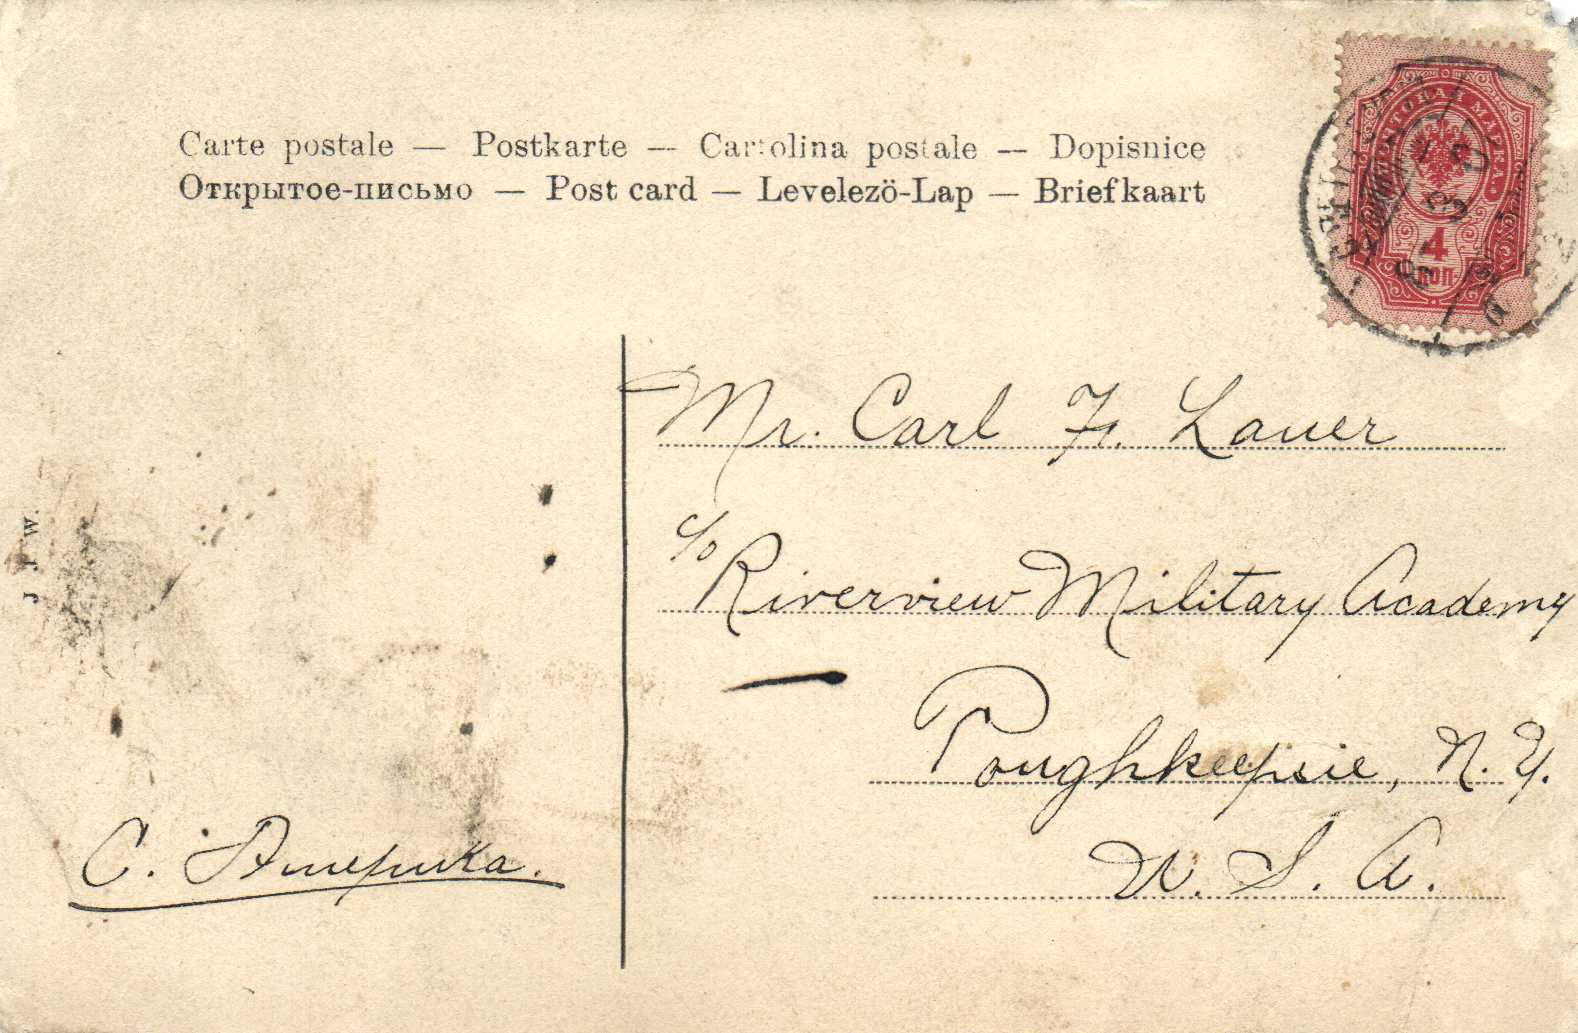 Carte postale — Postkarte — Cartolina postale — Dopisnice
Открытое-письмо — Post card — Levelezö-Lap — Briefkaart
4
КОП.
Mr. Carl F. Lauer
c/o Riverview Military Academy
Poughkeepsie, N. Y.
U. S. A.
С. Америка.